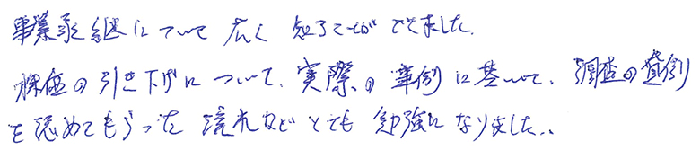 事業承継について広く知ることができました。
株価の引き下げについて、実際の事例に基いて、調査の実例
を認めてもらった流れなどとても勉強になりました。